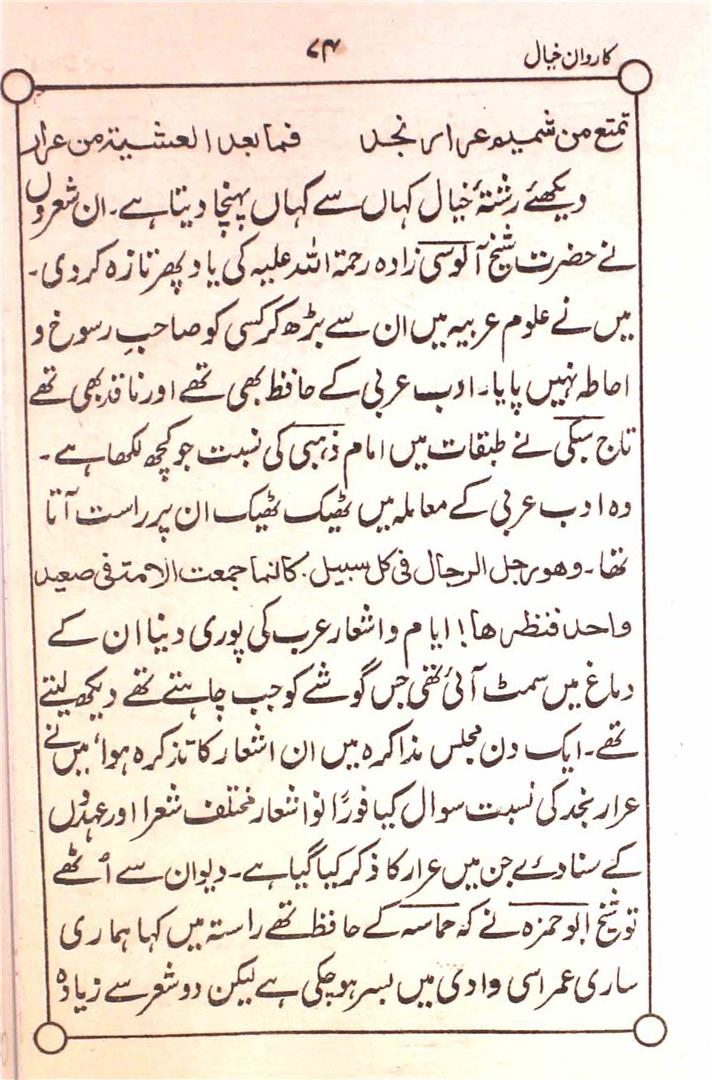 کاروان خیال
۷۴
تمتع من شمیم عرار نجد فما بعد العشیۃ من عرار
دیکھئے رشتۂ خیال کہاں سے کہاں پہنچا دیتا ہے۔ ان شعروں
نے حضرت شیخ آلوسی زادہ رحمۃ اللہ علیہ کی یاد پھر تازہ کردی۔
میں نے علوم عربیہ میں ان سے بڑھ کر کسی کو صاحبِ رسوخ و
احاطہ نہیں پایا۔ ادب عربی کے حافظ بھی تھے اور ناقد بھی تھے
تاج سبکی نے طبقات میں امام ذہبی کی نسبت جو کچھ لکھا ہے۔
وہ ادب عربی کے معاملہ میں ٹھیک ٹھیک ان پر راست آتا
تھا۔ وھو رجل الرجال فی کل سبیل۔ کانما جمعت الامۃ فی صعید
واحد فنظرھا! ایام و اشعار عرب کی پوری دینا ان کے
دماغ میں سمٹ آئی تھی جس گوشے کو جب چاہتے تھے دیکھ لیتے
تھے۔ ایک دن مجلس مذاکرہ میں ان اشعار کا تذکرہ ہوا، میں نے
عرار نجد کی نسبت سوال کیا فوراً نو اشعار مختلف شعرا اور عہدوں
کے سنا دئے جن میں عرار کا ذکر کیا گیا ہے۔ دیوان سے اُٹھے
تو شیخ ابو حمزہ نے کہ حماسہ کے حافظ تھے راستہ میں کہا ہماری
ساری عمر اسی وادی میں بسر ہوچکی ہے لیکن دو شعر سے زیادہ